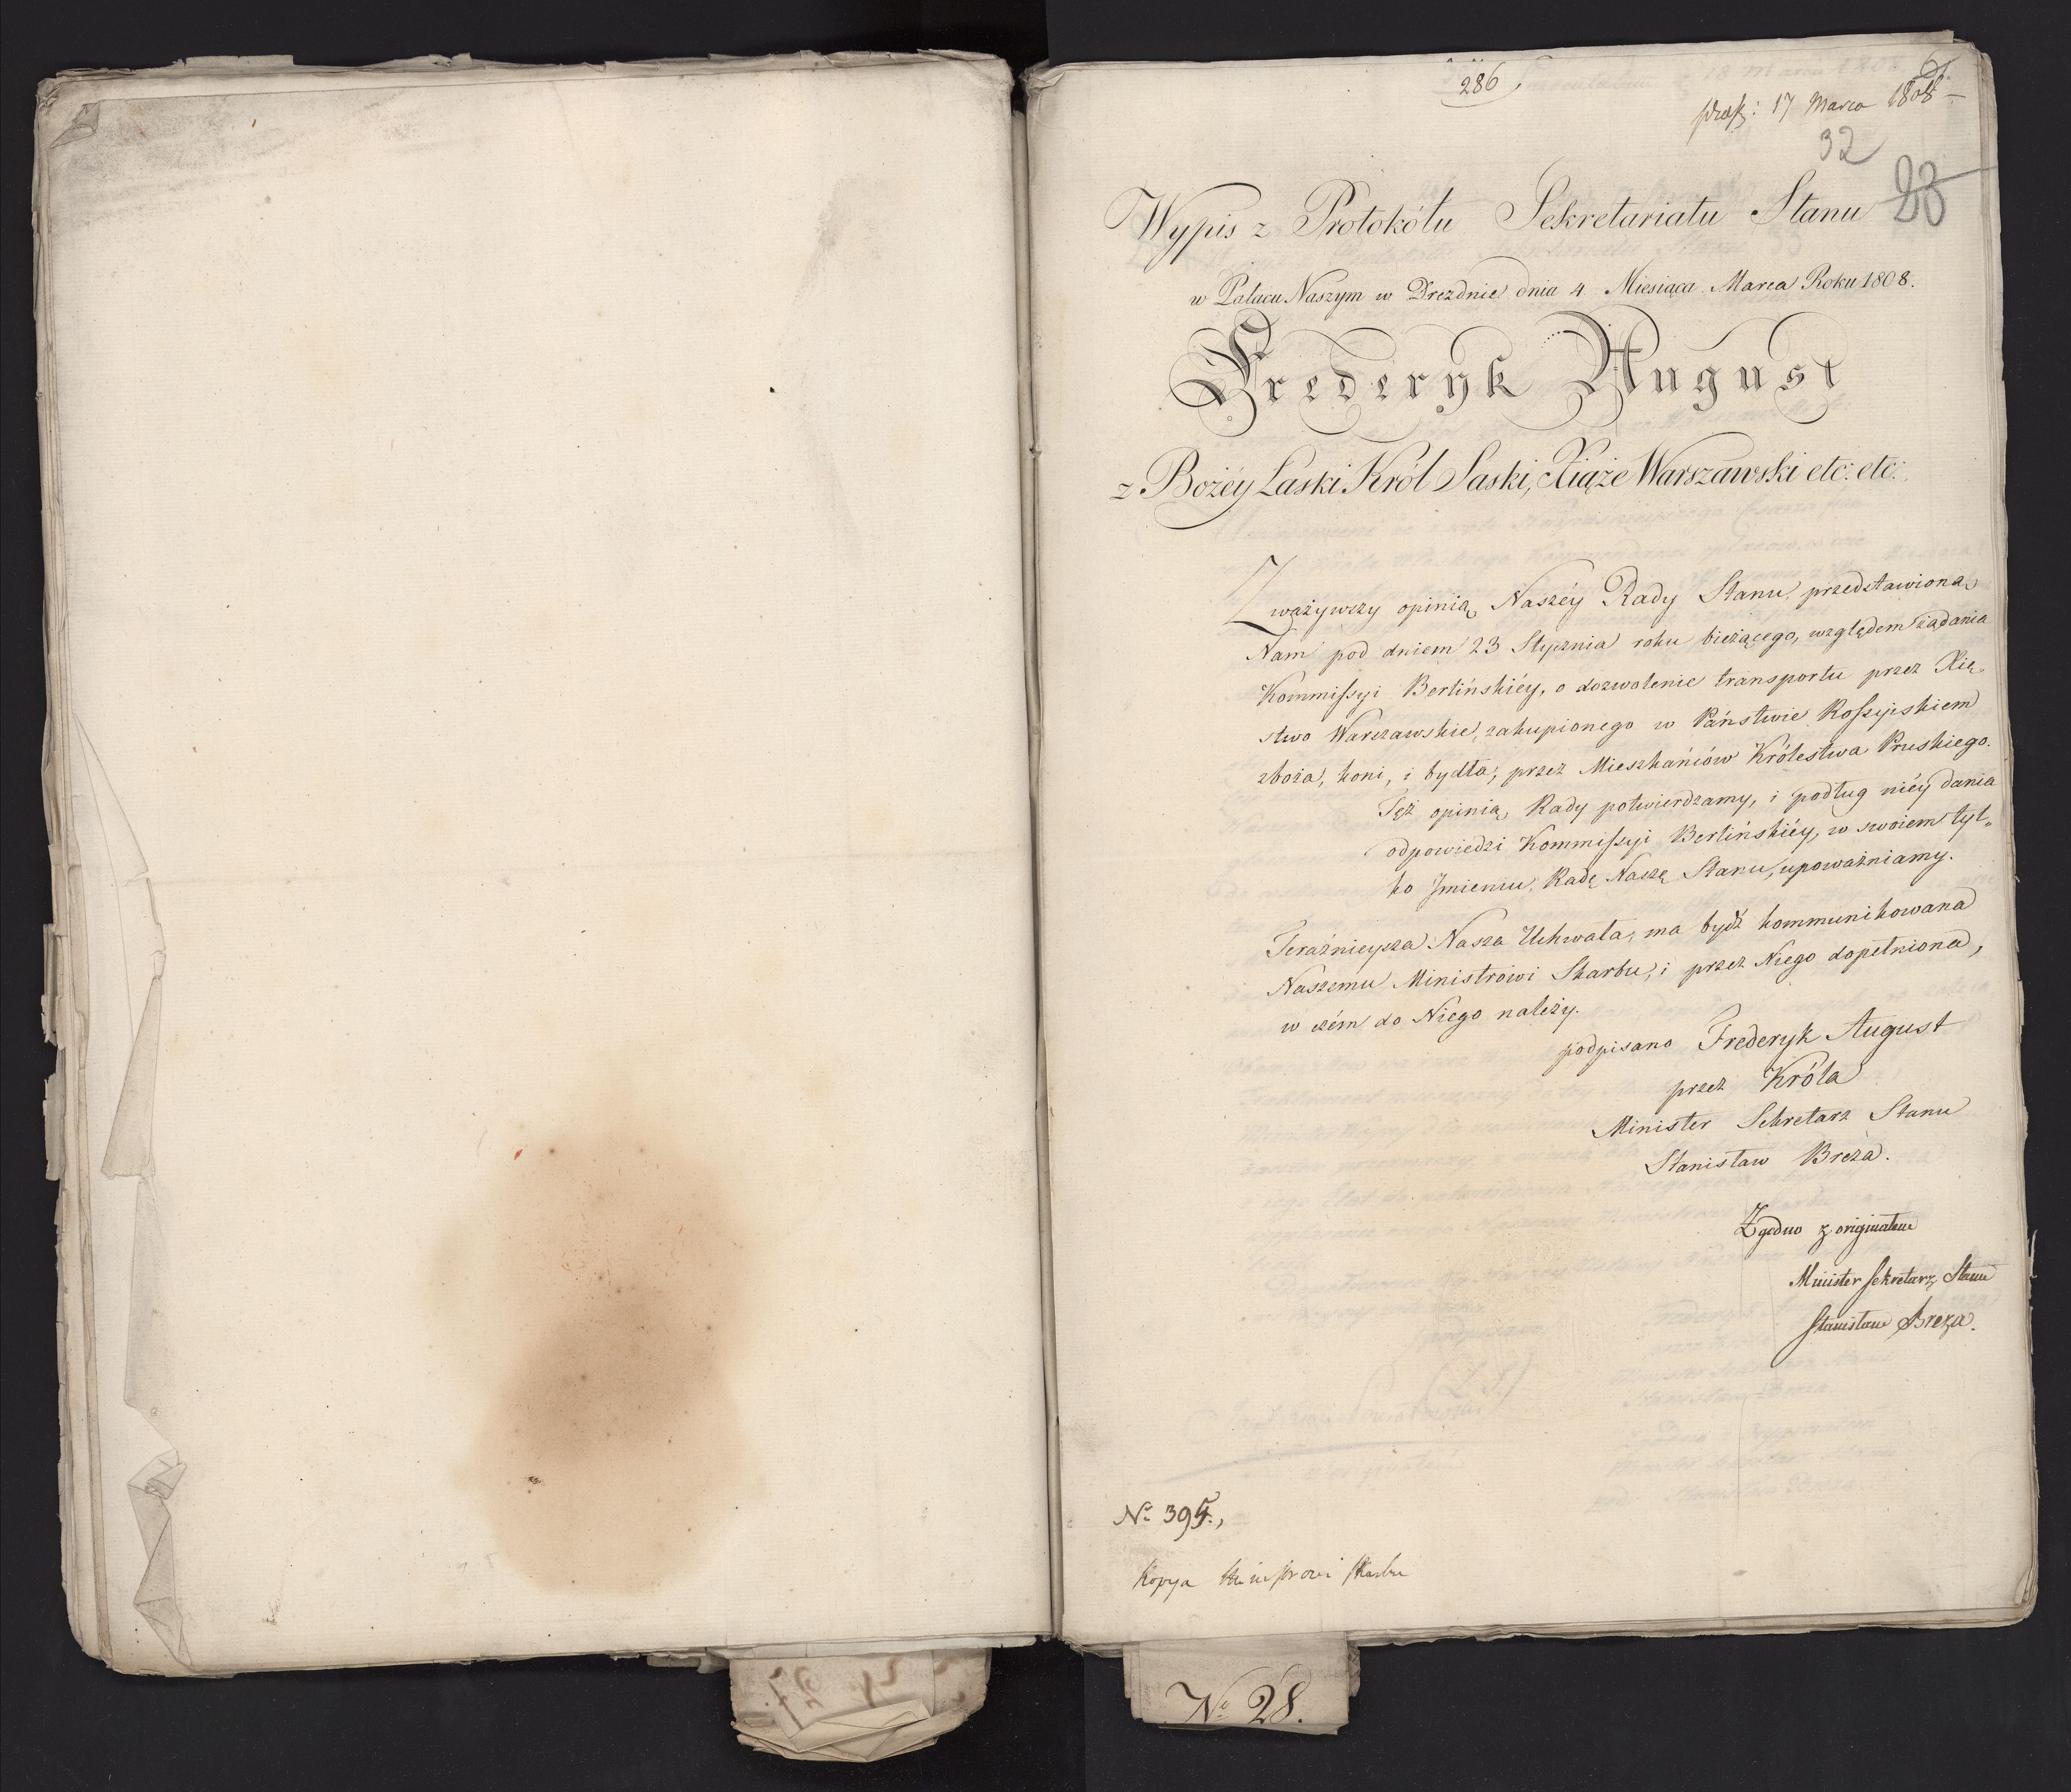 286
praes: 17 Marca 1808
32
28
Wypis z Protokółu Sekretariatu Stanu
w Pałacu Naszym w Dreznie dnia 4 Miesiąca Marca Roku 1808.
Frederyk August
z Bożéy Łaski Król Saski, Xiąże Warszawski etc: etc:
Zważywszy opinią Naszéy Rady Stanu, przedstawioną
Nam pod dniem 23 Stycznia roku bieżącego, względem żądania
Kommissyi Berlińskiéy, o dozwolenie transportu przez Xię-
stwo Warszawskie, zakupionego w Państwie Rossyiskiem
zboża, koni, i bydła, przez Mieszkańców Królestwa Pruskiego.
Tęż opinią Rady potwierdzamy, i podług niéy dania
odpowiedzi Kommissyi Berlińskiéy, w swoiem tyl-
ko Jmieniu, Radę Naszę Stanu, upoważniamy.
Teraźnieysza Nasza Uchwała, ma bydź kommunikowana
Naszemu Ministrowi Skarbu, i przez Niego dopełniona,
w czém do Niego należy.
podpisano Frederyk August
przez Króla
Minister Sekretarz Stanu
Stanisław Breza.
Zgodno z originałem
Minister Sekretarz Stanu
Stanisław Breza.
No 394.
Kopya Ministrowi Skarbu
No 28.